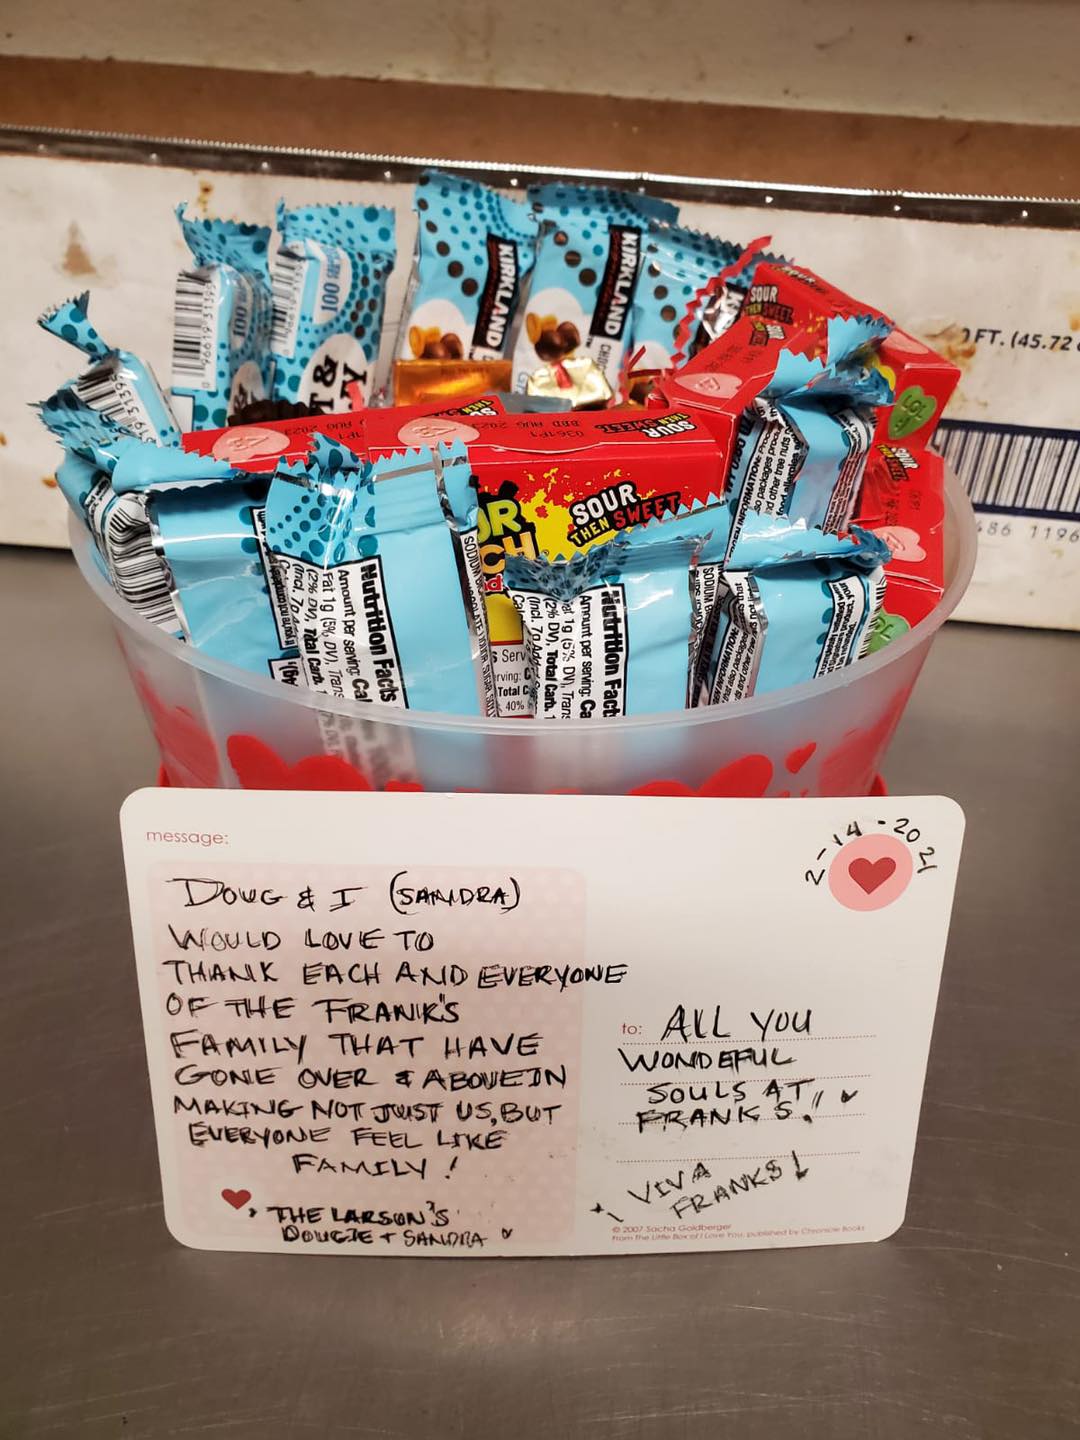 100
100
KIRKLAND
KIRKLAND
SOUR
THEN SWEET
FT. (45.72
LOL
SOUR
THEN SWEET
SOUR
THEN SWEET
Nutrition Facts
Amount per serving: Cal
Fat 1g (5% DV), Trans
(2% DV), Total Carb.
Nutrition Facts
Amount per serving: Ca
Fat 1g (5% DV), Trans
(2% DV), Total Carb.
Total C
40%
86 1196
message:
2-14-2021
DOUG & I (SANDRA)
WOULD LOVE TO
THANK EACH AND EVERYONE
OF THE FRANK'S
FAMILY THAT HAVE
GONE OVER & ABOVE IN
MAKING NOT JUST US, BUT
EVERYONE FEEL LIKE
FAMILY!
THE LARSON'S
DOUGIE + SANDRA
to: ALL YOU
WONDEFUL
SOULS AT
FRANKS!
VIVA
FRANKS!
© 2007 Sacha Goldberger
From The Little Box of I Love You, published by Chronicle Books